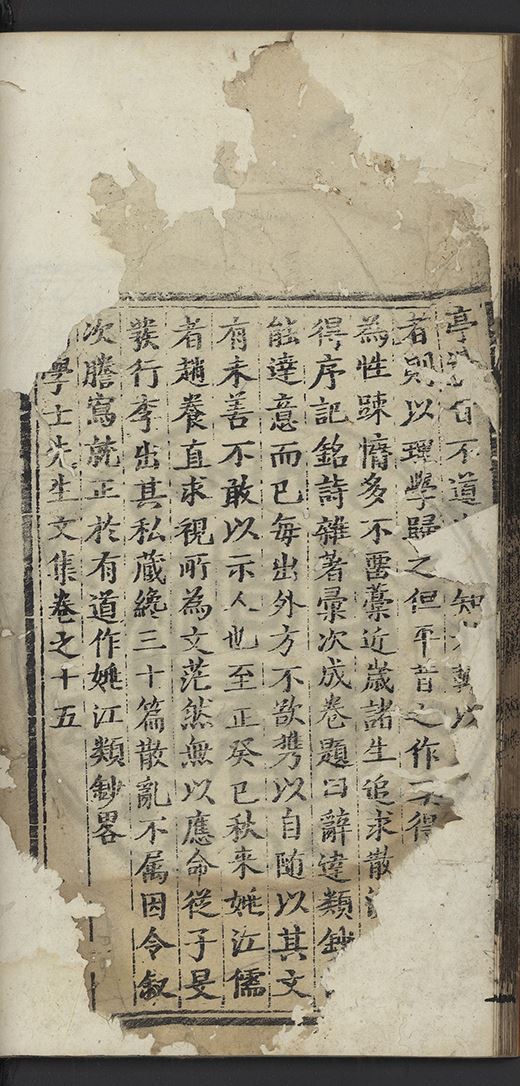 亭不道知
者則以理學歸之但平昔之作不得
為性踈惰多不畱藁近歲諸生追求散
得序記銘詩雜著彚次成卷題曰辭達類鈔
能達意而已每出外方不欲携以自随以其文
有未善不敢以示人也至正癸巳秋來姚江儒
者趙養直求視所為文茫然無以應命從子旻
發行李出其私蔵纔三十篇散亂不属因令叙
次謄寫就正於有道作姚江類鈔畧
學士先生文集卷之十五